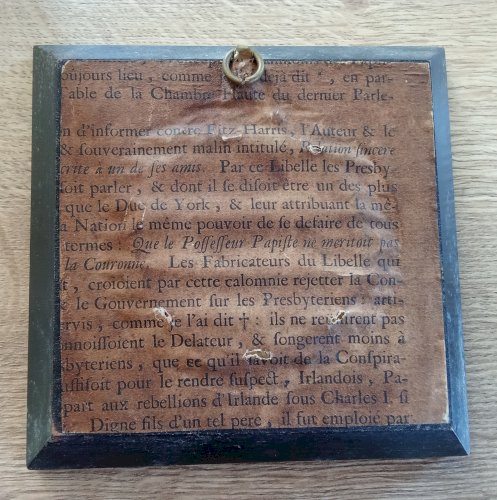 oujours lieu, comme je l'ai déja dit *, en par-
Table de la Chambre Haute du dernier Parle-
n d'informer contre Fitz-Harris, l'Auteur & le
& souverainement malin intitulé, Relation sincere
crite à un de ses amis. Par ce Libelle les Presby-
soit parler, & dont il se disoit être un des plus
que le Duc de York, & leur attribuant la mê-
a Nation le même pouvoir de se defaire de tous
termes: Que le Possesseur Papiste ne meritoit pas
la Couronne. Les Fabricateurs du Libelle qui
t, croioient par cette calomnie rejetter la Con-
e le Gouvernement sur les Presbyteriens: arti-
rvis, comme je l'ai dit †: ils ne reussirent pas
nnoissoient le Delateur, & songerent moins à
sbyteriens, que ce qu'il savoit de la Conspira-
aissisoit pour le rendre suspect, Irlandois, Pa-
part aux rebellions d'Irlande sous Charles I. si
Digne fils d'un tel pere, il fut emploié par